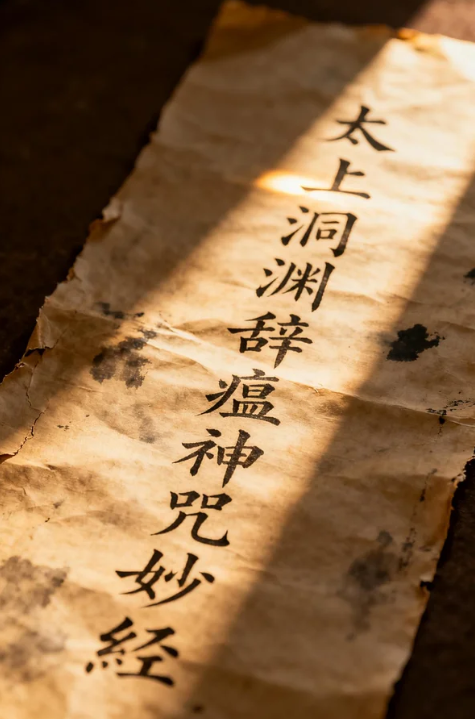 太上洞渊辞瘟神咒妙経